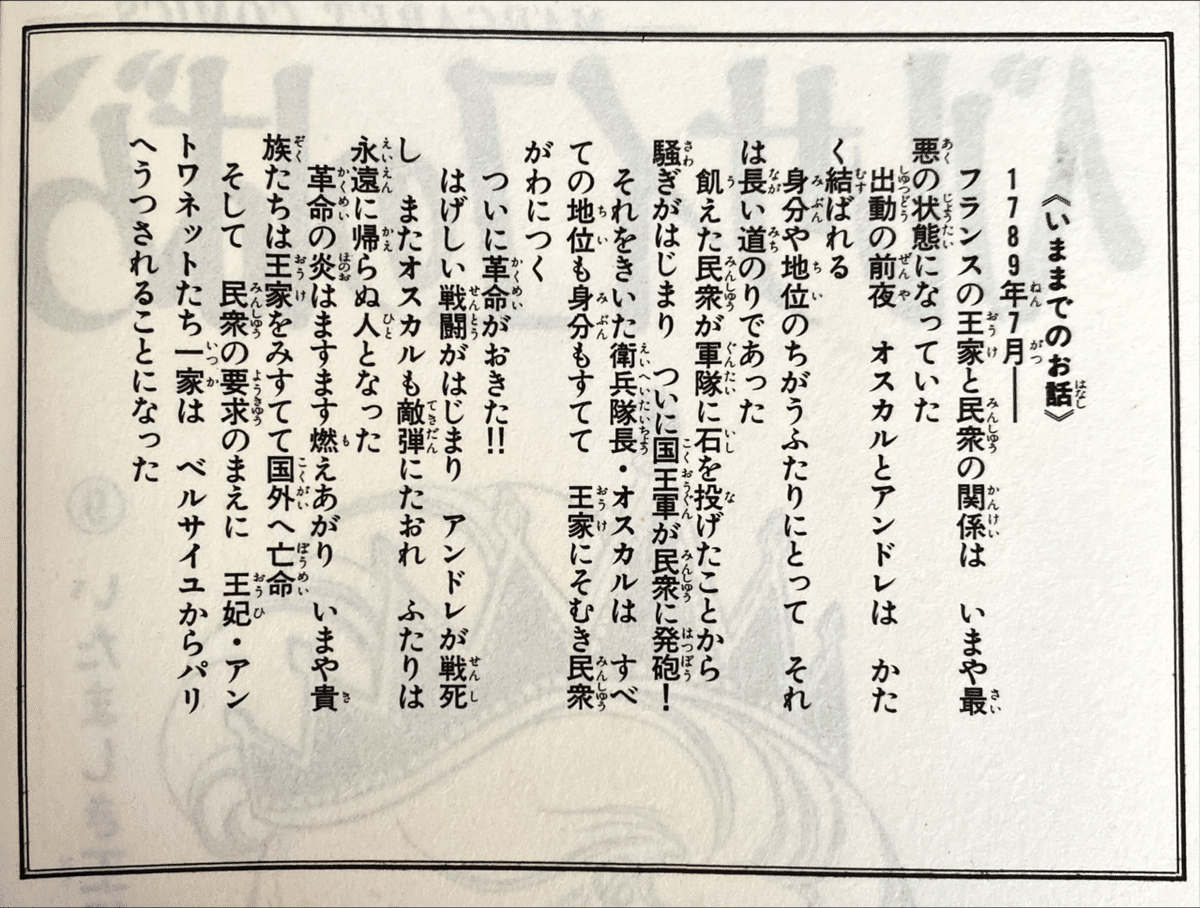 《いままでのお話》
1789年7月――
フランスの王家と民衆の関係は　いまや最
悪の状態になっていた
出動の前夜　オスカルとアンドレは　かた
く結ばれる
身分や地位のちがうふたりにとって　それ
は長い道のりであった
飢えた民衆が軍隊に石を投げたことから
騒ぎがはじまり　ついに国王軍が民衆に発砲！
それをきいた衛兵隊長・オスカルは　すべ
ての地位も身分もすてて　王家にそむき民衆
がわにつく
ついに革命がおきた!!
はげしい戦闘がはじまり　アンドレが戦死
し　またオスカルも敵弾にたおれ　ふたりは
永遠に帰らぬ人となった
革命の炎はますます燃えあがり　いまや貴
族たちは王家をみすてて国外へ亡命
そして　民衆の要求のまえに　王妃・アン
トワネットたち一家は　ベルサイユからパリ
へうつされることになった